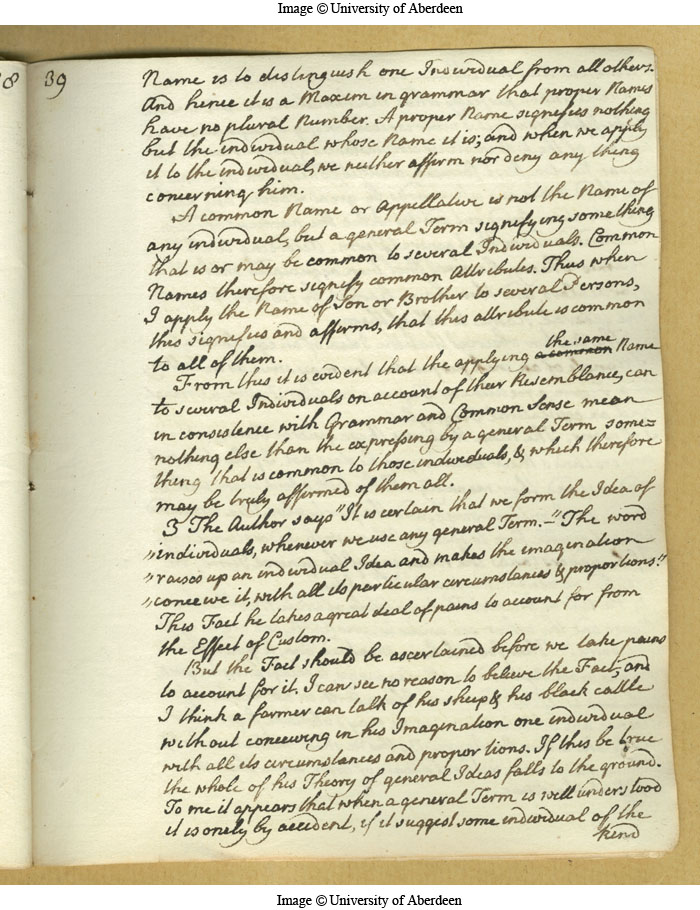 Image © University of Aberdeen
8
39
Name is to distinguish one Individual from all others.
And hence it is a Maxim in grammar that proper Names
have no plural Number. A proper Name signifies nothing
but the individual whose Name it is; and when we apply
it to the individual, we neither affirm nor deny any thing
concerning him.
A common Name or Appellative is not the Name of
any individual, but a general Term signifying something
that is or may be common to several Individuals. Common
Names therefore signify common Attributes. Thus when
I apply the Name of Son or Brother to several Persons,
this signifies and affirms, that this attribute is common
to all of them.
the same
From this it is evident that the applying a common Name
to several Individuals on account of their Resemblance, can
in consistence with Grammar and Common Sense mean
nothing else than the expressing by a general Term some=
thing that is common to those individuals, & which therefore
may be truly affirmed of them all.
3 The Author says "It is certain that we form the Idea of
"individuals, whenever we use any general Term.-" The word
"raises up an individual Idea and makes the imagination
"conceive it, with all its particular circumstances & proportions."
This Fact he takes a great deal of pains to account for from
the Effect of Custom.
But the Fact should be ascertained before we take pains
to account for it. I can see no reason to believe the Fact; and
I think a farmer can talk of his sheep & his black cattle
without conceiving in his Imagination one individual
with all its circumstances and proportions. If this be true
the whole of his Theory of general Ideas falls to the ground.
To me it appears that when a general Term is well understood
it is onely by accident, if it suggest some individual of the
kind
Image © University of Aberdeen